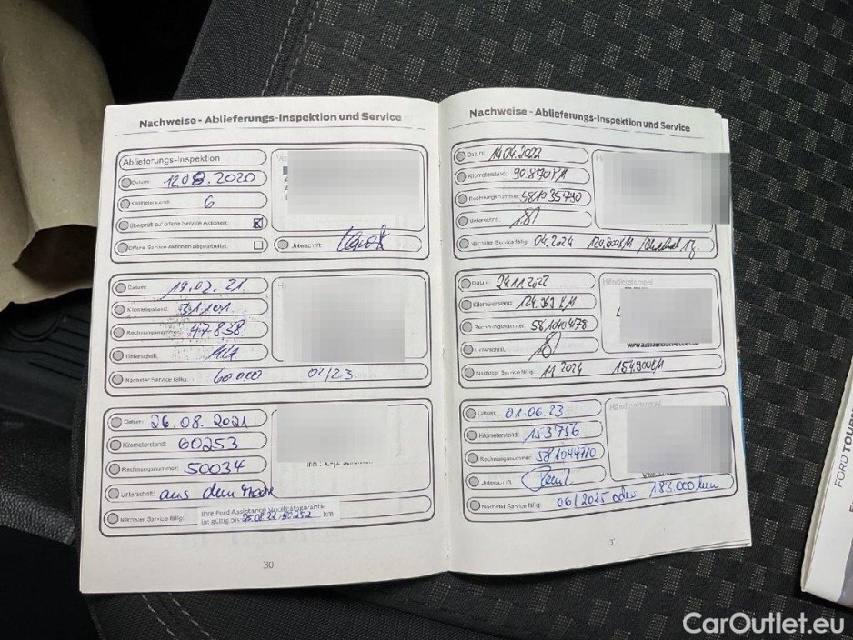 Nachweise - Ablieferungs-Inspektion und Service
Ablieferungs-Inspektion
Datum: 12.08.2020
Kilometerstand: 6
Überprüft auf offene Service Aktionen:
Offene Service Aktionen abgearbeitet:
Unterschrift:
Datum: 19.02.21
Kilometerstand:
Rechnungsnummer: 47838
Unterschrift:
Nächster Service fällig: 60000 01/23
Datum: 26.08.2021
Kilometerstand: 60253
Rechnungsnummer: 50034
Unterschrift: aus dem
Nächster Service fällig:
Ihre Ford Assistance Mobilitätsgarantie
ist gültig bis km
30
Nachweise - Ablieferungs-Inspektion und Service
Datum: 14.04.2022
Kilometerstand: 90.870 KM
Rechnungsnummer: 581035490
Unterschrift:
Nächster Service fällig: 04.2024 120.800KM
Datum: 24.11.2022
Händlerstempel
Kilometerstand: KM
Rechnungsnummer: 581040478
Unterschrift:
Nächster Service fällig: 11.2024 154.300KM
Datum: 01.06.23
Händlerstempel
Kilometerstand: 153756
Rechnungsnummer: 581044710
Unterschrift:
Nächster Service fällig: 06/2025 oder 183.000 km
FORD
CarOutlet.eu